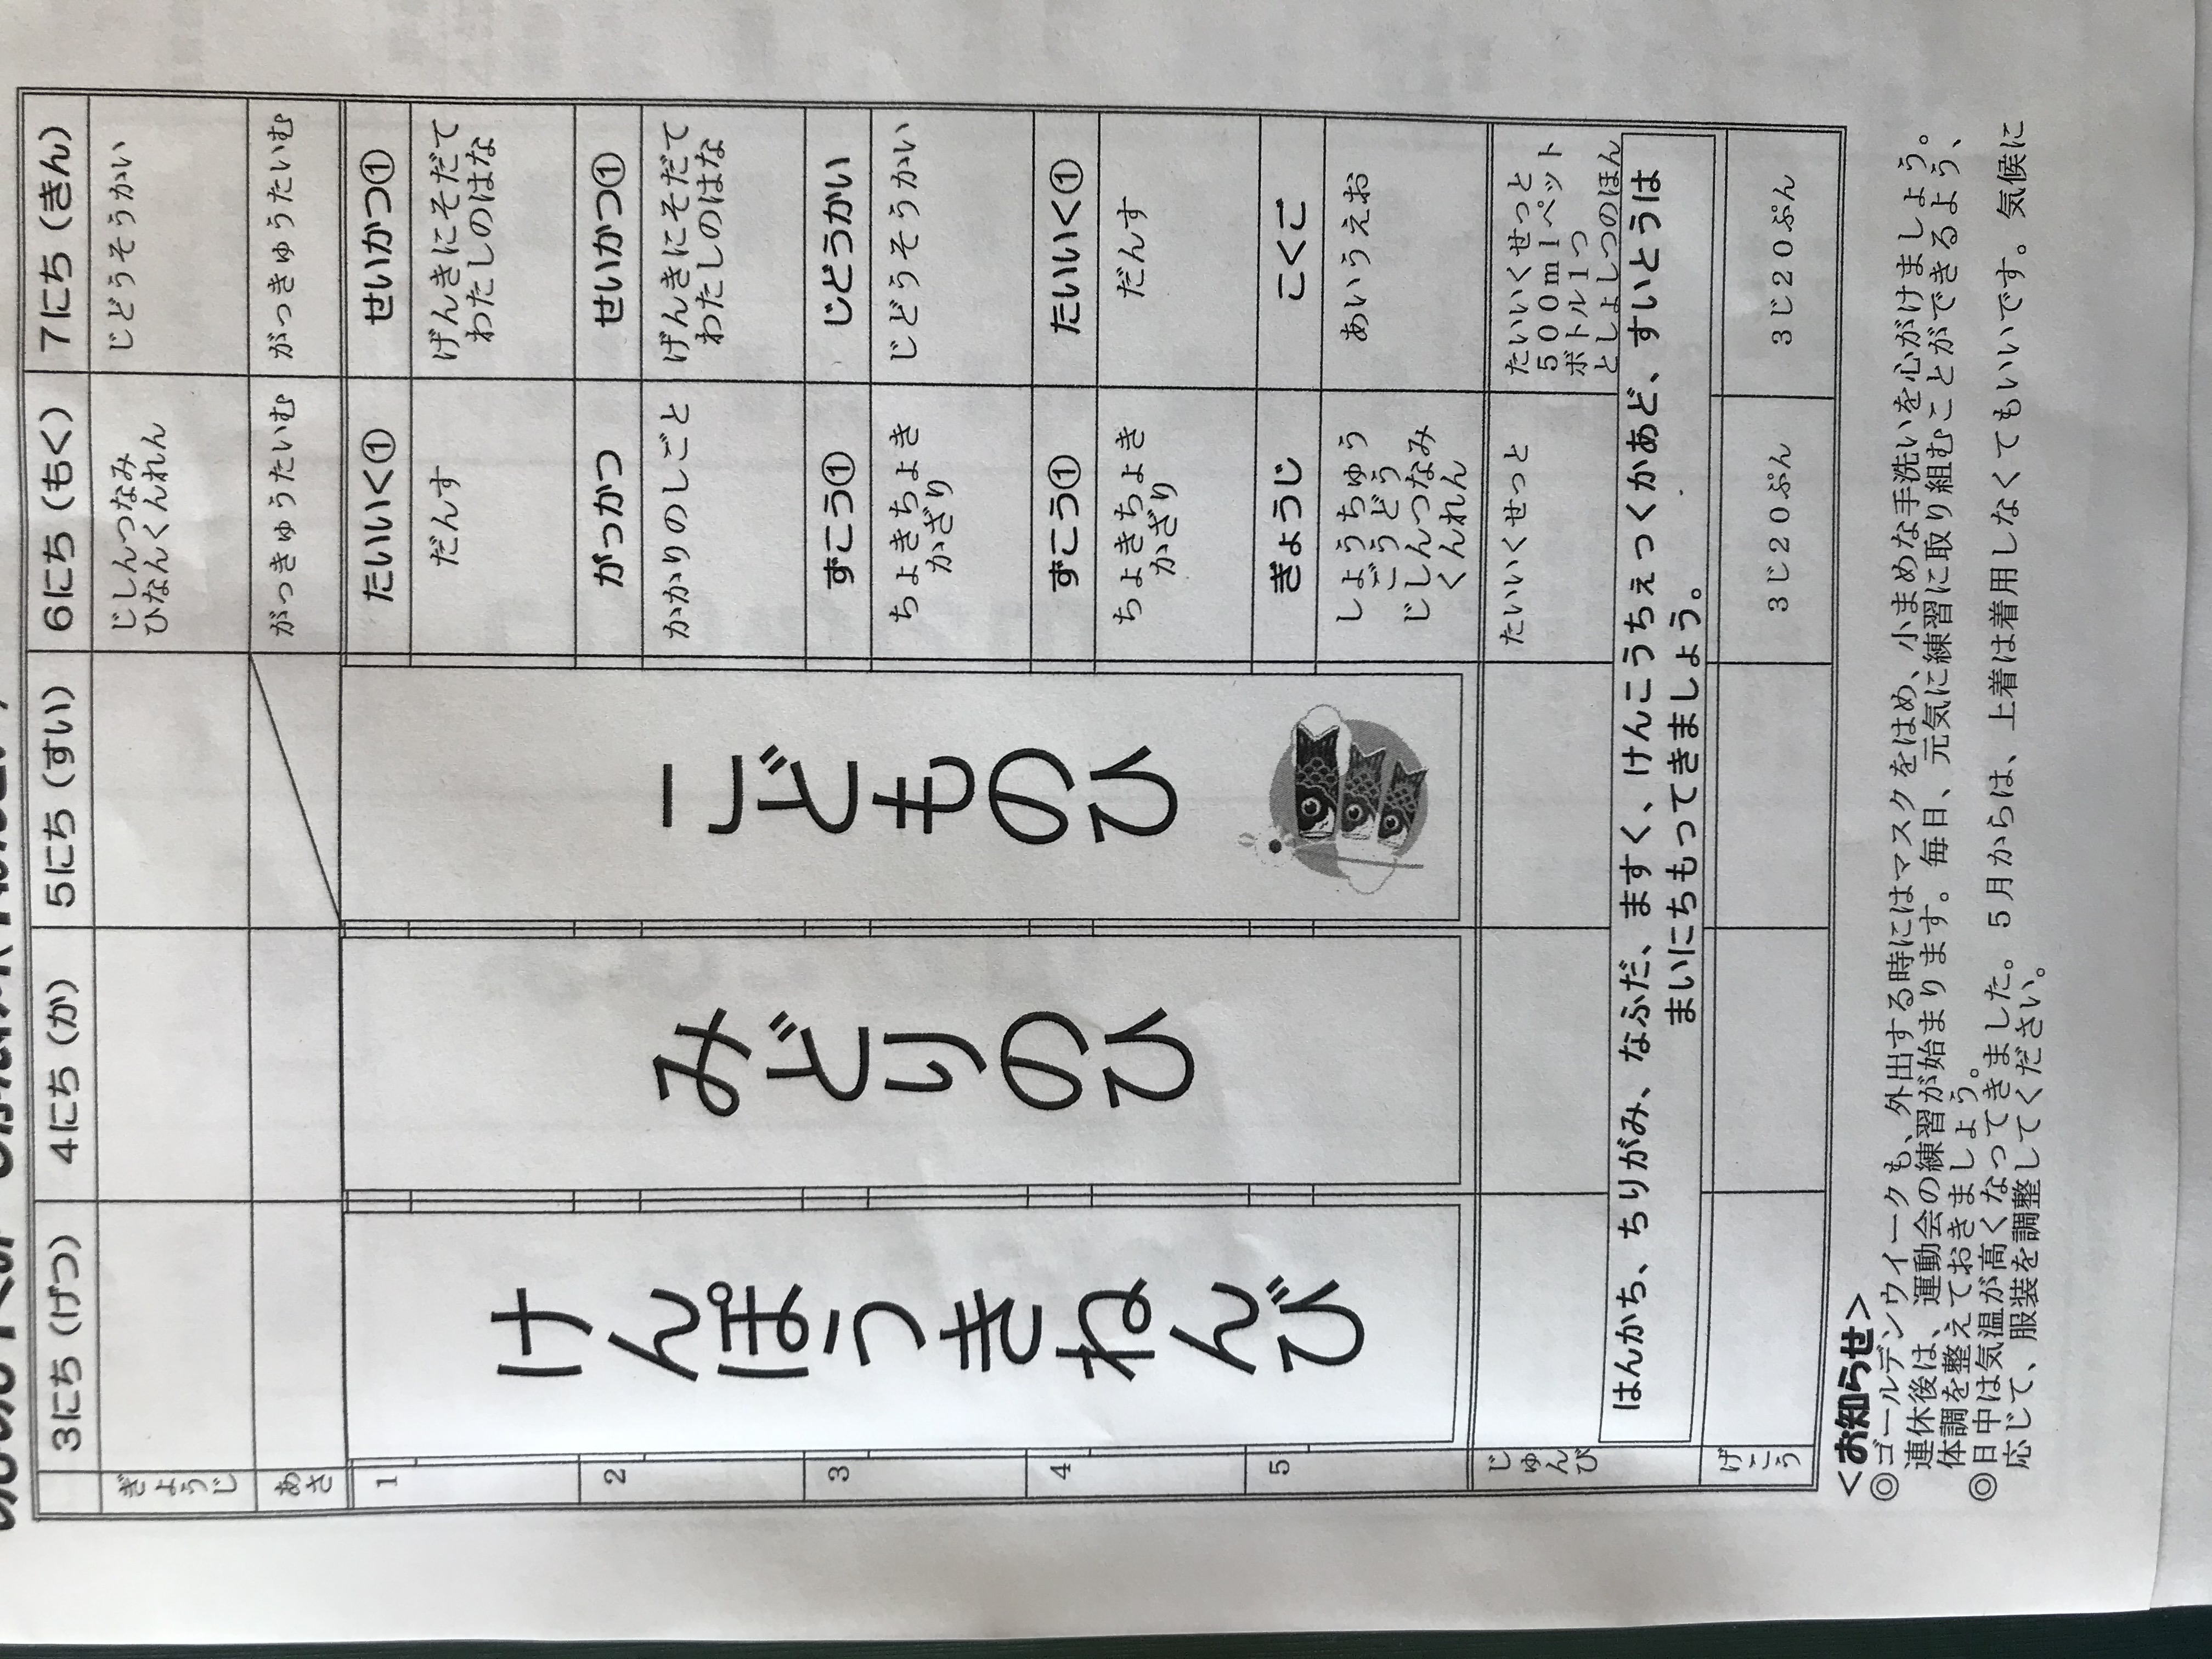 3にち（げつ）
4にち（か）
5にち（すい）
6にち（もく）
7にち（きん）
ぎょうじ
じしんつなみ
ひなんくんれん
じどうそうかい
あさ
がっきゅうたいむ
がっきゅうたいむ
けんぽうきねんび
みどりのひ
こどものひ
1
たいいく①
せいかつ①
だんす
げんきにそだて
わたしのはな
2
がっかつ
せいかつ①
かかりのしごと
げんきにそだて
わたしのはな
3
ずこう①
じどうかい
ちょきちょき
かざり
じどうそうかい
4
ずこう①
たいいく①
ちょきちょき
かざり
だんす
5
ぎょうじ
こくご
しょうちゅう
ごうどう
じしんつなみ
くんれん
あいうえお
じゅんび
たいいくせっと
たいいくせっと
５００ｍｌペット
ボトル１つ
としょしつのほん
はんかち、ちりがみ、なふだ、ますく、けんこうちぇっくかあど、すいとうは
まいにちもってきましょう。
げこう
３じ２０ぷん
３じ２０ぷん
＜お知らせ＞
◎ゴールデンウイークも、外出する時にはマスクをはめ、小まめな手洗いを心がけましょう。
連休後は、運動会の練習が始まります。毎日、元気に練習に取り組むことができるよう、
体調を整えておきましょう。
◎日中は気温が高くなってきました。５月からは、上着は着用しなくてもいいです。気候に
応じて、服装を調整してください。